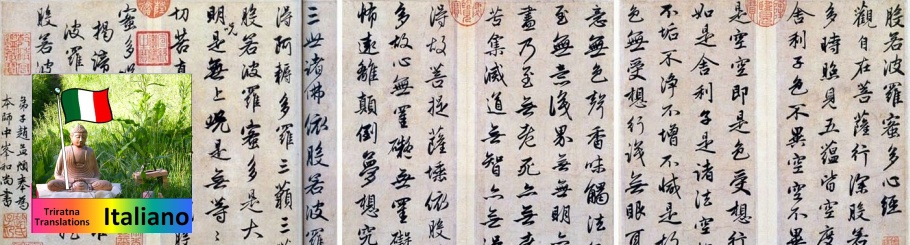 般若波羅蜜多心經
觀自在菩薩行深般若
多時照見五蘊皆空度
舍利子色不異空空不
是空即是色受想行
如是舍利子是諸法空
不垢不淨不增不減是故
色無受想行識無眼
意無色聲香味觸法
至無意識界無無明
盡乃至無老死亦無
苦集滅道無智亦無
得故菩提薩埵依般
多故心無罣礙無罣礙
怖遠離顛倒夢想究
三世諸佛依般若波羅
得阿耨多羅三藐三
般若波羅蜜多是大
明呪是無上呪是無等
切苦真
般
蜜多
揭諦
波羅
般若
弟子趙孟頫奉為
本師中峯和尚書
Triratna
Translations
Italiano